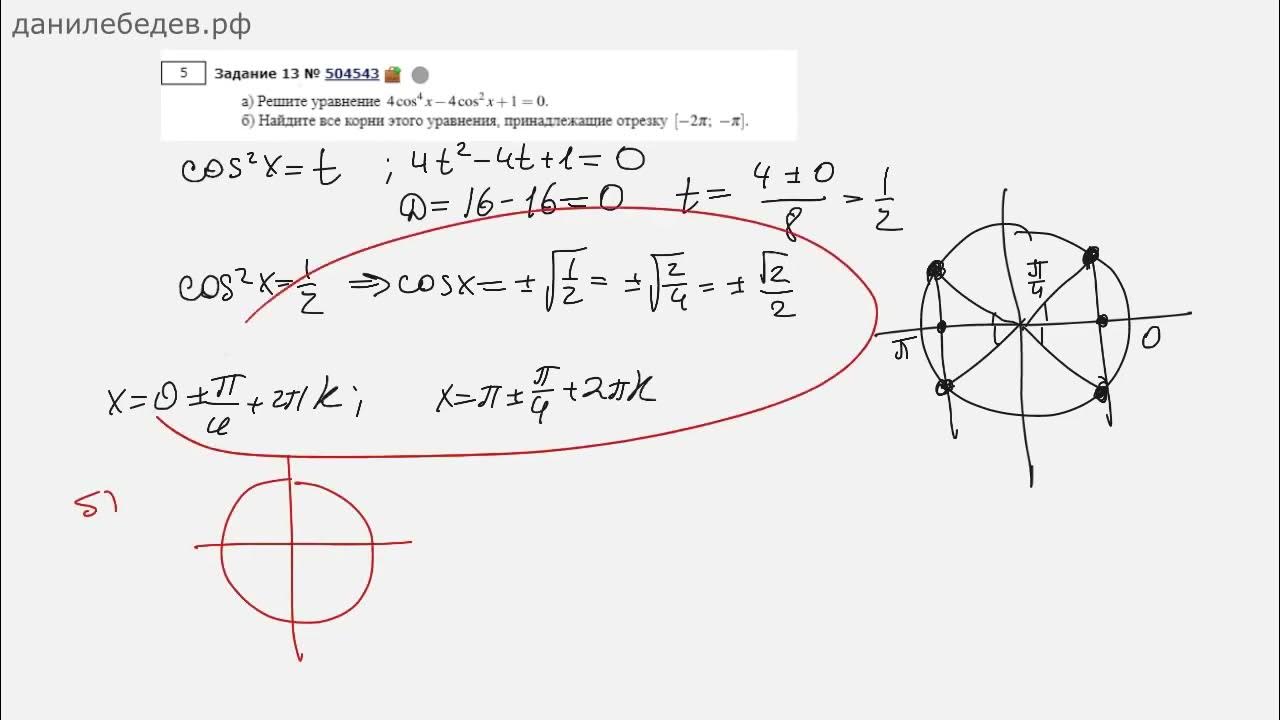 данилебедев.рф
5 Задание 13 № 504543
а) Решите уравнение 4cos⁴x − 4cos²x + 1 = 0.
б) Найдите все корни этого уравнения, принадлежащие отрезку [−2π; −π].
cos²x = t ; 4t² − 4t + 1 = 0
D = 16 − 16 = 0 t = (4 ± 0)/8 = 1/2
cos²x = 1/2 ⇒ cosx = ± √(1/2) = ± √(2/4) = ± √2/2
π/4
π 0
x = 0 ± π/4 + 2πk ; x = π ± π/4 + 2πk
б)